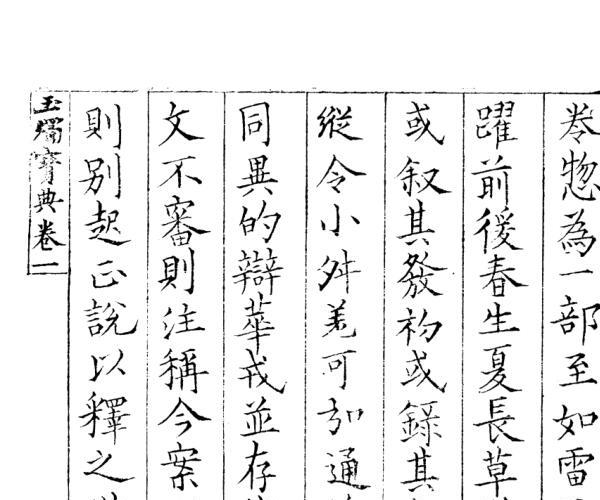 卷惣為一部至如雷
躍前後春生夏長草
或叙其發初或録其
縱令小舛差可弘通
同異的辯華戎並存
文不審則注稱今案
則別起正說以釋之
玉燭寶典卷一